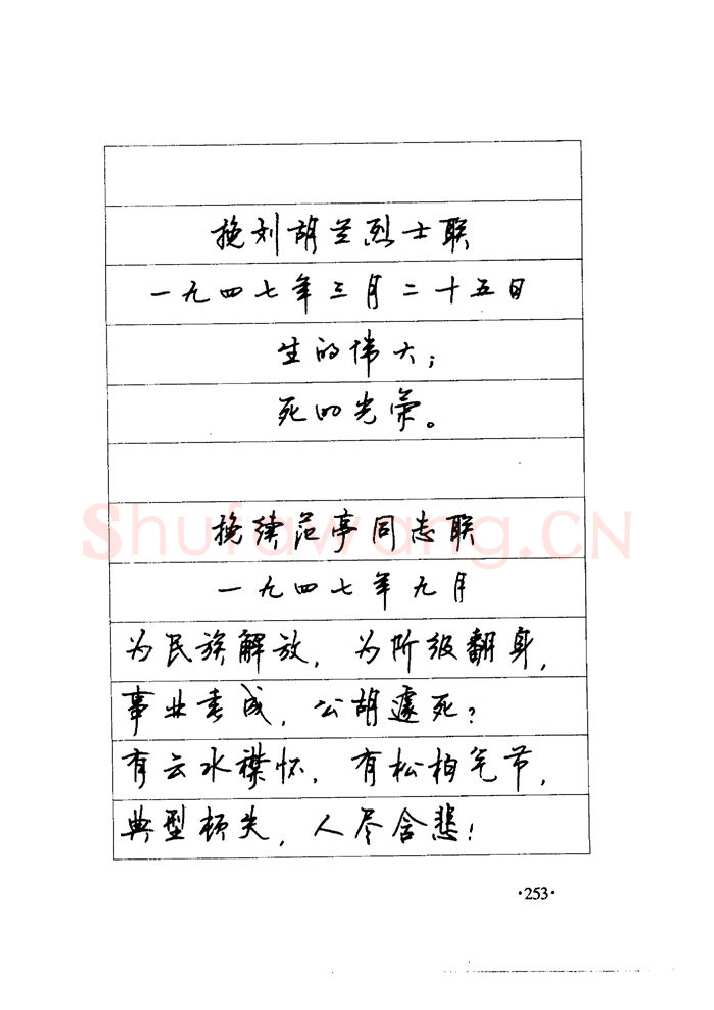 挽刘胡兰烈士联
一九四七年三月二十五日
生的伟大;
死的光荣。
挽续范亭同志联
一九四七年九月
为民族解放,为阶级翻身,
事业垂成,公胡遽死?
有云水襟怀,有松柏气节,
典型顿失,人尽含悲!
Shufawang.CN
·253·